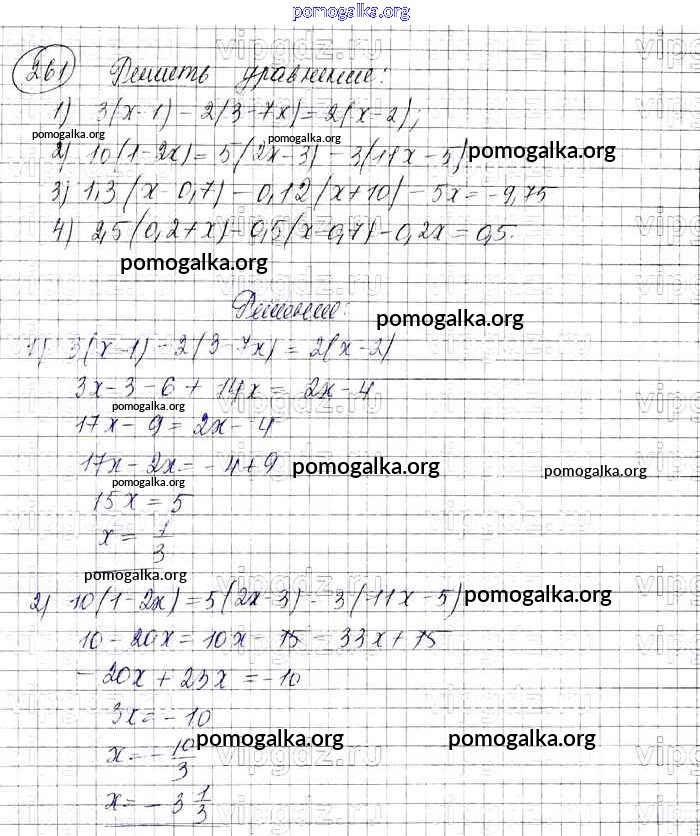 pomogalka.org
261 Решить уравнение:
1) 3(x-1) - 2(3-7x) = 2(x-2);
pomogalka.org pomogalka.org
2) 10(1-2x) = 5(2x-3) - 3(11x-5) pomogalka.org
3) 1,3(x-0,7) - 0,12(x+10) - 5x = -9,75
4) 2,5(0,2+x) - 0,5(x-0,7) - 0,2x = 0,5.
pomogalka.org
Решение:
pomogalka.org
1) 3(x-1) - 2(3-7x) = 2(x-2)
3x - 3 - 6 + 14x = 2x - 4
pomogalka.org
17x - 9 = 2x - 4
17x - 2x = -4 + 9 pomogalka.org pomogalka.org
pomogalka.org
15x = 5
x = 1/3
pomogalka.org
2) 10(1-2x) = 5(2x-3) - 3(11x-5) pomogalka.org
10 - 20x = 10x - 15 - 33x + 15
-20x + 23x = -10
3x = -10
pomogalka.org pomogalka.org
x = -10/3
x = -3 1/3